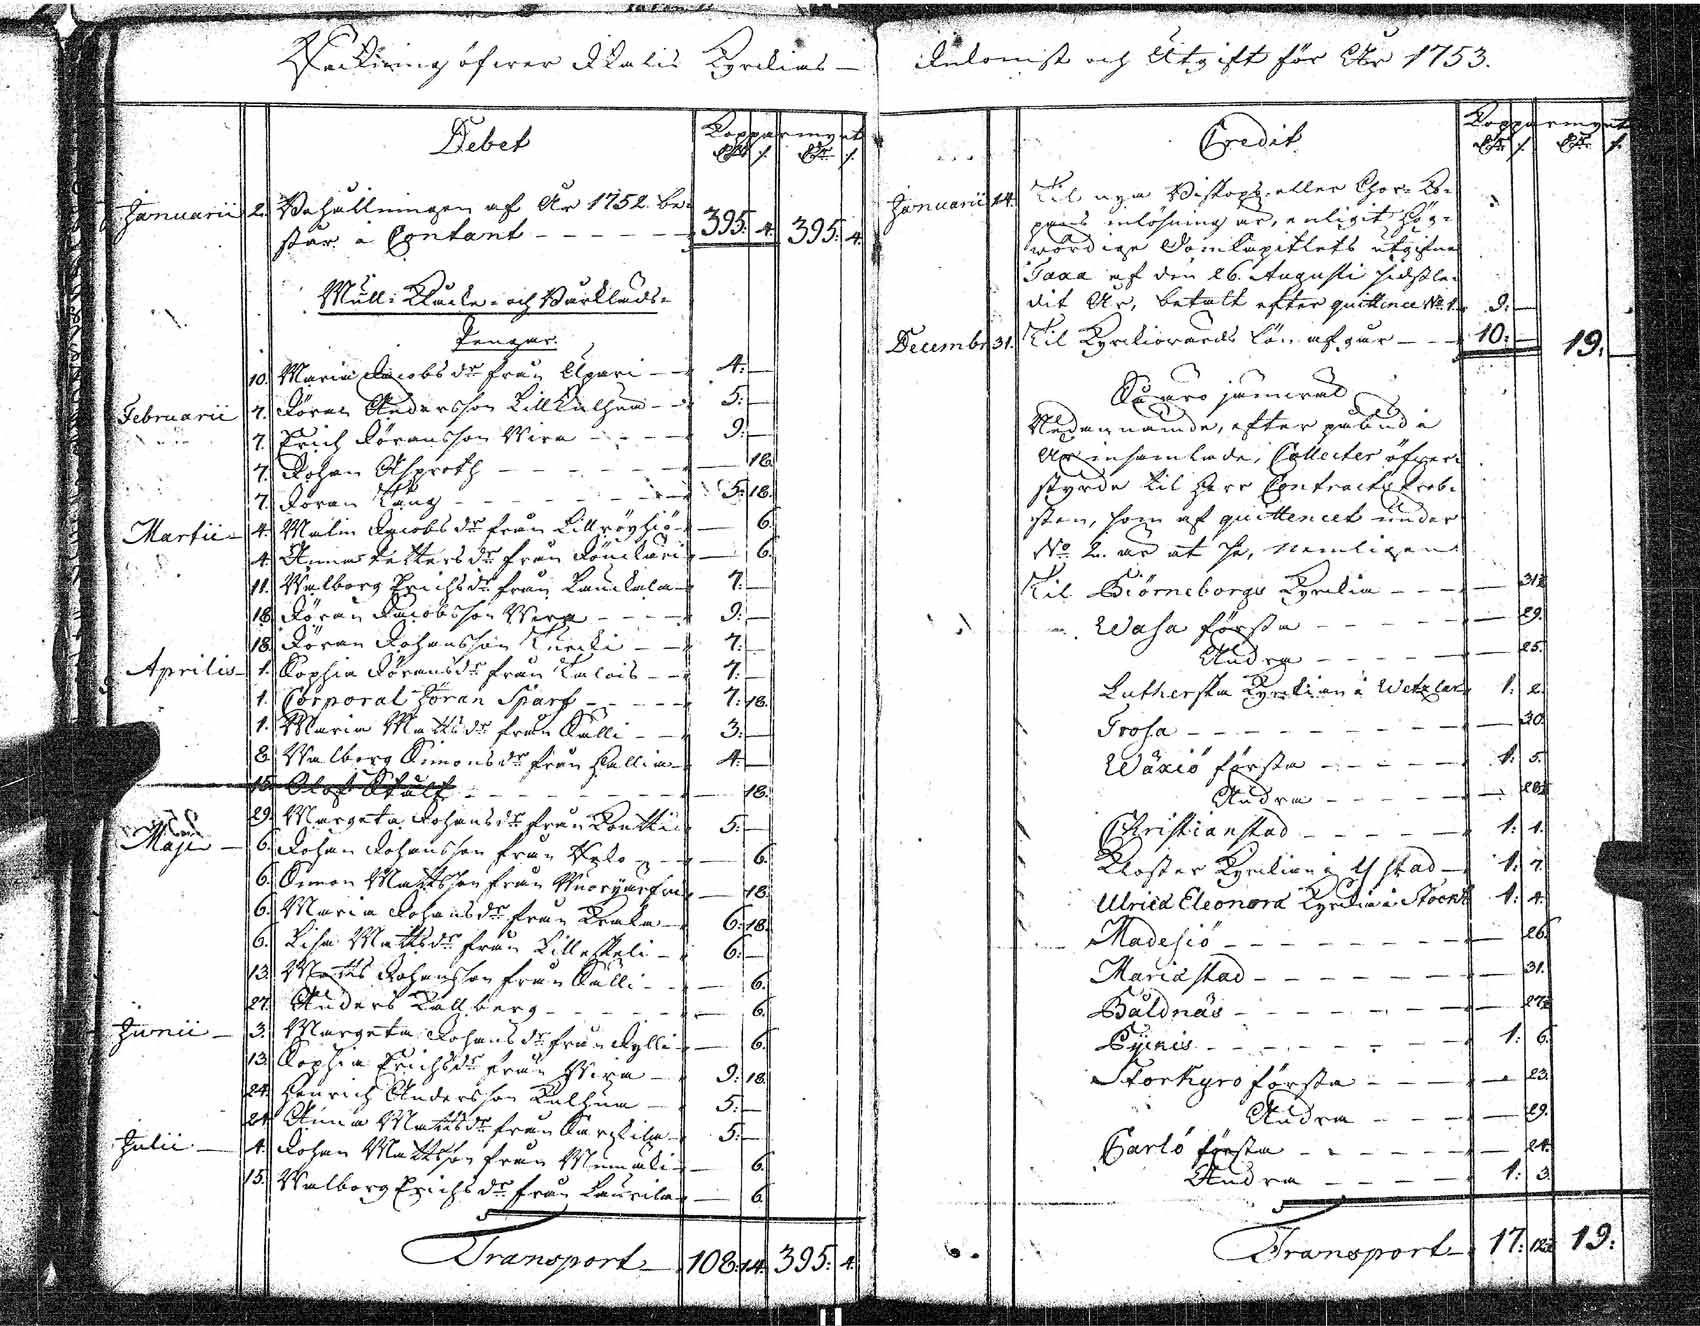 Räckning öfwer Ikalis Kyrckias —
Debet
Kopparmynt
Januarii 2. Behållningen af År 1752. be-
står i Contant - - - - - 395: 4. 395: 4.
Mull: Klåcke- och Bårkläds-
Pengar.
10. Maria Jacobs dr från Upari - - 4: —
Februarii 7. Jöran Andersson Lillkulhua - - 5: —
7. Erich Jöransson Wira - - - - 9: —
7. Johan Asproth - - - - - — 18.
7. Jöran Käng - - - - - 5: 18.
Martii - 4. Malin Jacobs dr från Lillröyhiö - — 6.
4. Anna Petters dr från — 6.
11. Walborg Erichs dr från 7: —
18. Jöran Jacobsson Wira - - - - 9: —
18. Jöran Johansson - - 7: —
Aprilis - 1. Sophia Jörans dr från - - 7: —
1. Corporal Jöran Sparf - - - - - 7: 18.
1. Maria Matts dr från Sälli - - 3: —
8. Walborg Simons dr från Hallia - 4: —
15. Olof Stult - - - - - - - — 18.
29. Margeta Johans dr från 5: —
Maji - 6. Johan Johansson från - - — 6.
6. Simon Mattsson från — 18.
6. Maria Johans dr från - 6: 18.
6. Lisa Matts dr från - 6: —
13. Matts Johansson från Sälli - - — 6.
27. Anders Kallberg - - - - - — 6.
Junii - 3. Margeta Johans dr från Kylli - — 6.
13. Sophia Erichs dr från Wira - 9: 18.
24. Henrich Andersson Kulhua - 5: —
24. Anna Matts dr från 5: —
Julii - 4. Johan Mattsson från — 6.
15. Walborg Erichs dr från — 6.
Transport - 108: 14. 395: 4.
Inkomst och Utgift för År 1753.
Credit
Kopparmynt
Januarii 14. Til nya Biskops- eller Chor-Kå-
pans inlösning är, enligit Hög-
wördige DomCapitlets utgifna
Taxa af den 26. Augusti sidstle-
dit År, betalt efter quittence No. 1. 9: —
Decembr 31. Til Kyrckiowärds Lön afgår - - - 10: — 19: —
Nedannämde, efter påbud i
År insamlade, Collecter öfwer-
styrde til Herr Contracts Prob-
sten, som af quittencet under
No. 2. är at se, Nemligen
Til Biörneborgs Kyrckia - - - — 31.
Wasa första - - - - - — 29.
Andra - - - - — 25.
Lutherska Kyrckian i Wetzlar 1: 2.
Trosa - - - - - - - — 30.
Wäxiö första - - - - - 1: 5.
Andra - - - - —
Christianstad - - - - - 1: 1.
Kloster Kyrckian i Ystad - 1: 7.
Ulrica Eleonora Kyrckia i Stockh 1: 4.
Madesiö - - - - - - - — 26.
Mariastad - - - - - - — 31.
Båldnäs - - - - - - - —
- - - - - - - 1: 6.
Storkyro första - - - - — 23.
Andra - - - - — 29.
Carlö första - - - - - — 24.
Andra - - - - - 1: 3.
Transport - 17: 19: